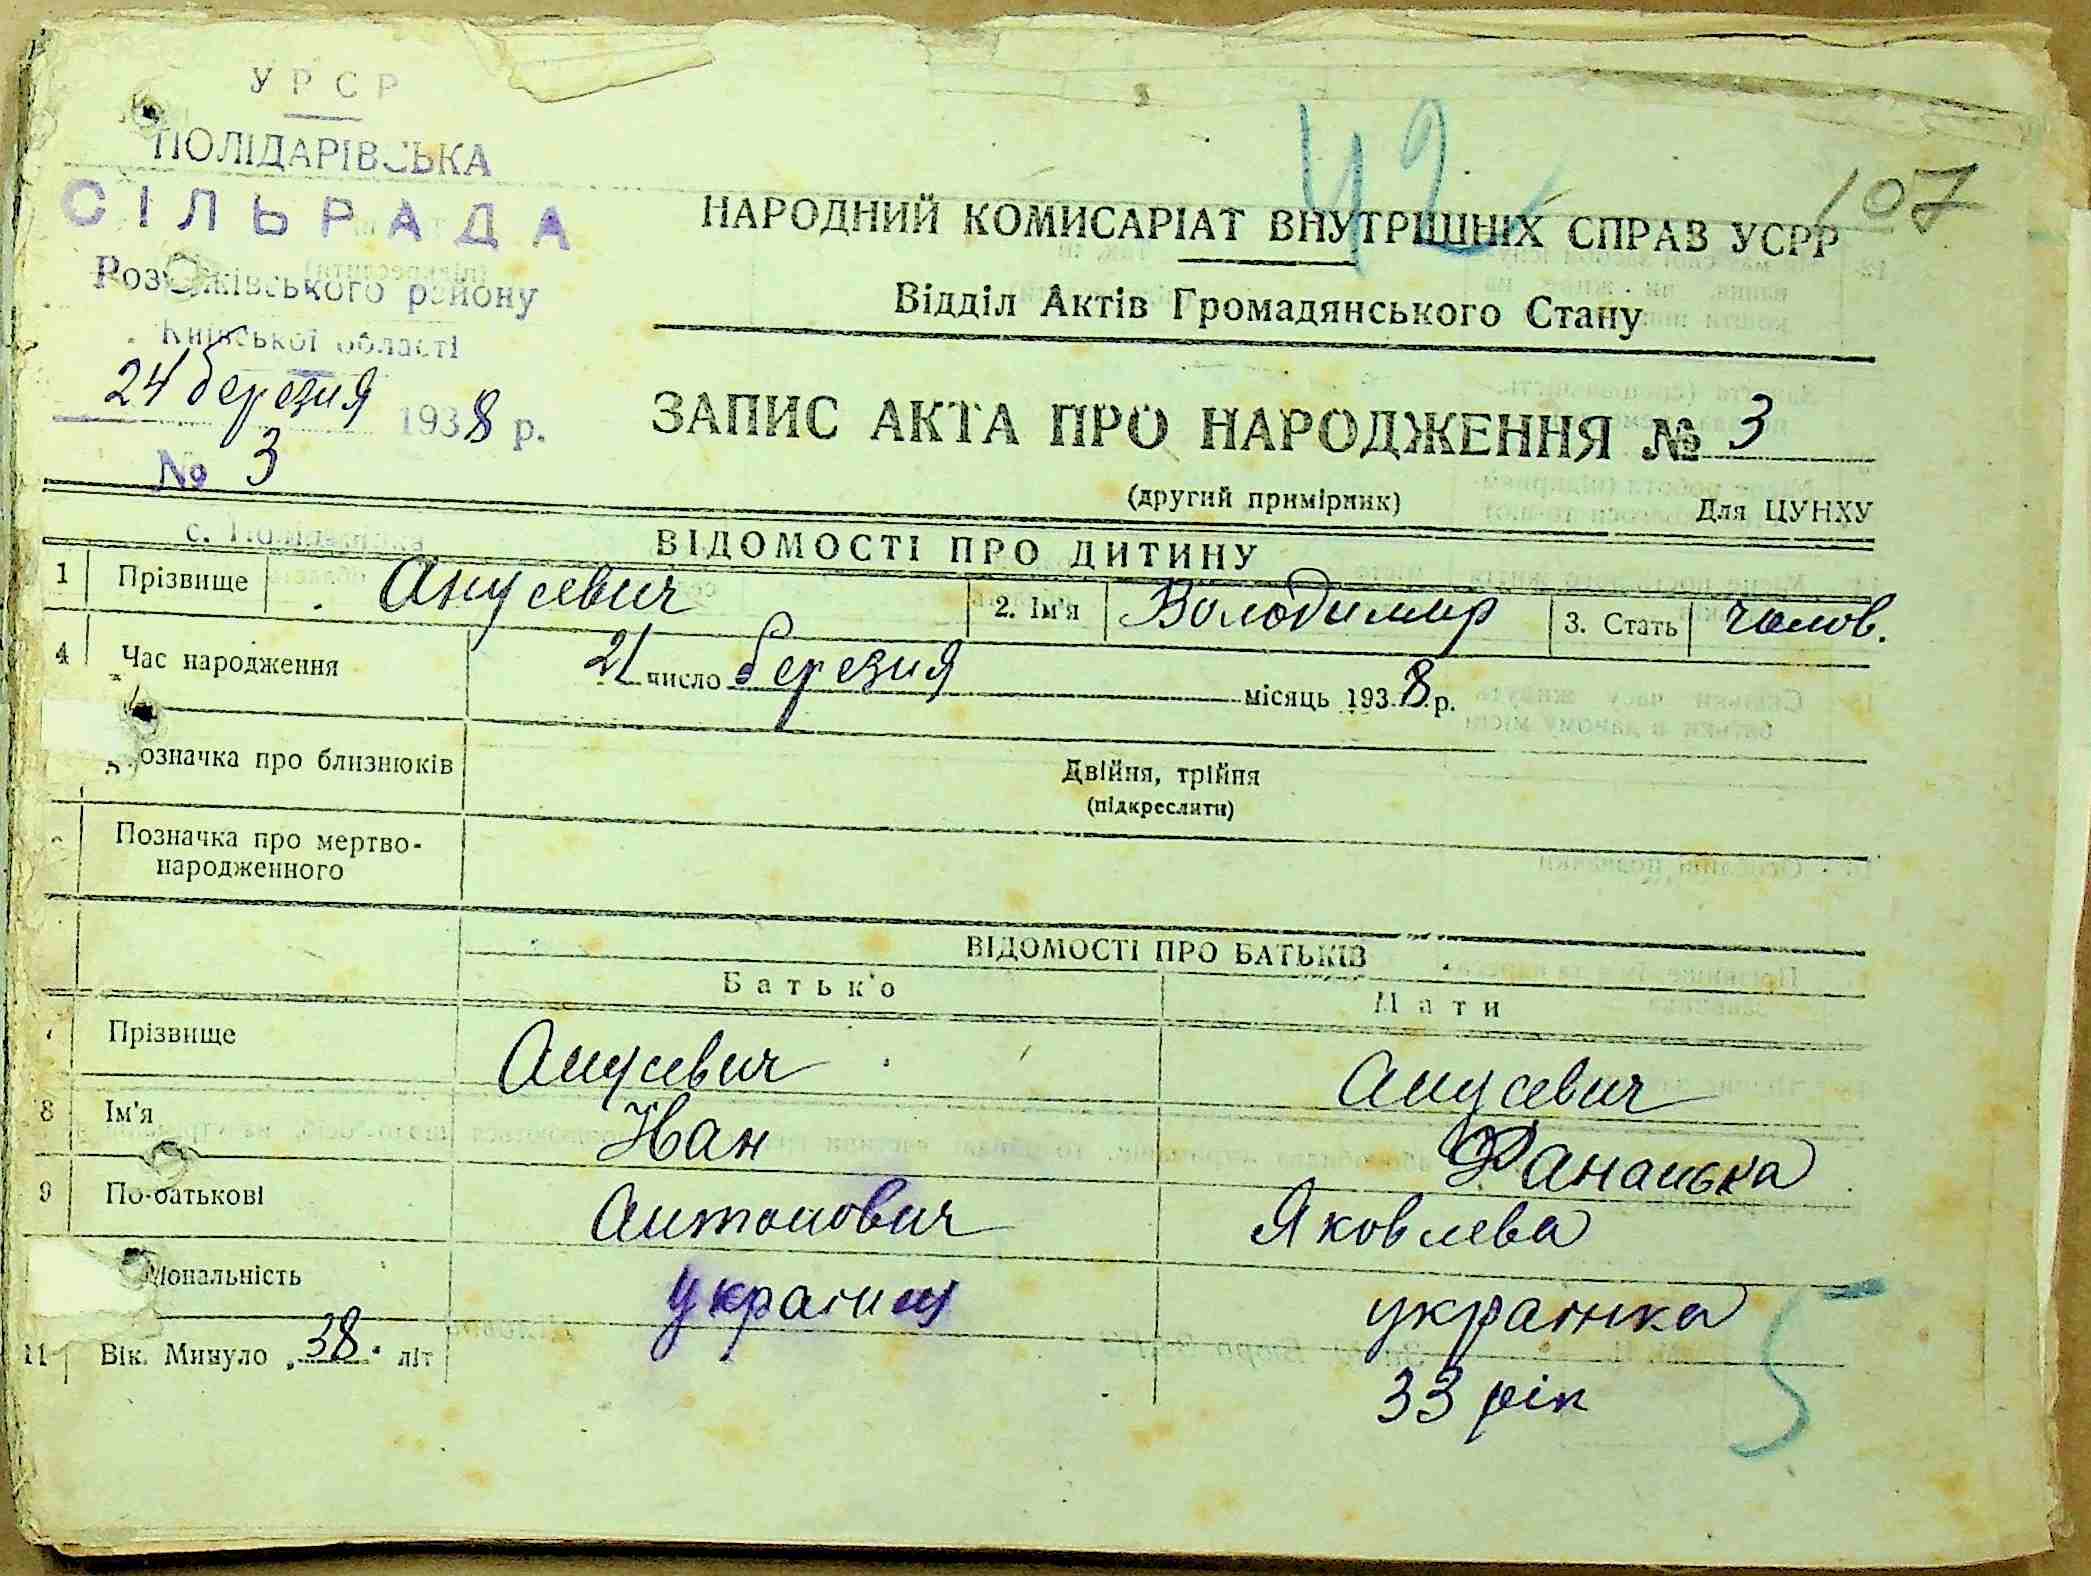 УРСР
ПОЛІДАРІВСЬКА
СІЛЬРАДА
Розважівського району
Київської області
24 березня 1938 р.
№ 3
42
107
НАРОДНИЙ КОМИСАРІАТ ВНУТРІШНІХ СПРАВ УСРР
Відділ Актів Громадянського Стану
ЗАПИС АКТА ПРО НАРОДЖЕННЯ № 3
(другий примірник)
Для ЦУНХУ
ВІДОМОСТІ ПРО ДИТИНУ
1 Прізвище Анусевич 2. Ім'я Володимир 3. Стать чолов.
4 Час народження 21 число березня місяць 1938 р.
означка про близнюків Двійня, трійня
(підкреслити)
Позначка про мертво-
народженного
ВІДОМОСТІ ПРО БАТЬКІВ
Батько Мати
Прізвище Анусевич Анусевич
8 Ім'я Іван Фанаська
9 По-батькові Антонович Яковлева
іональність українц українка
11 Вік. Минуло 38 літ 33 рік
5